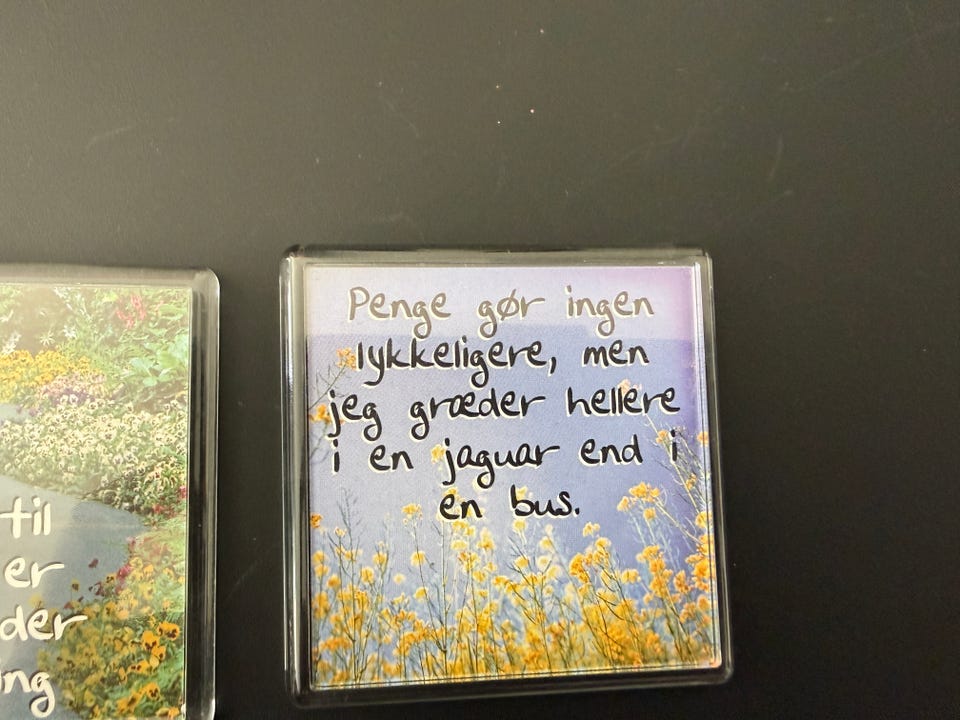 Penge gør ingen
lykkeligere, men
jeg græder hellere
i en jaguar end i
en bus.
til
er